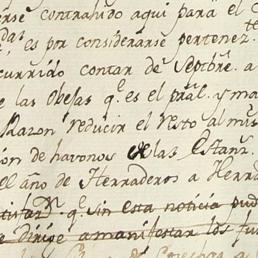 erse contrahido aqui para el C
das, es por considerarse pertenezte
currido contar de Septbre. a
e las Obejas qe. es el pral. y ma
Razon reducir el resto al mis
ion de havonos de las Estanz.
el año de Herraderos a Herra
qe. sin esta noticia pud
e dirige a manifestar los fu